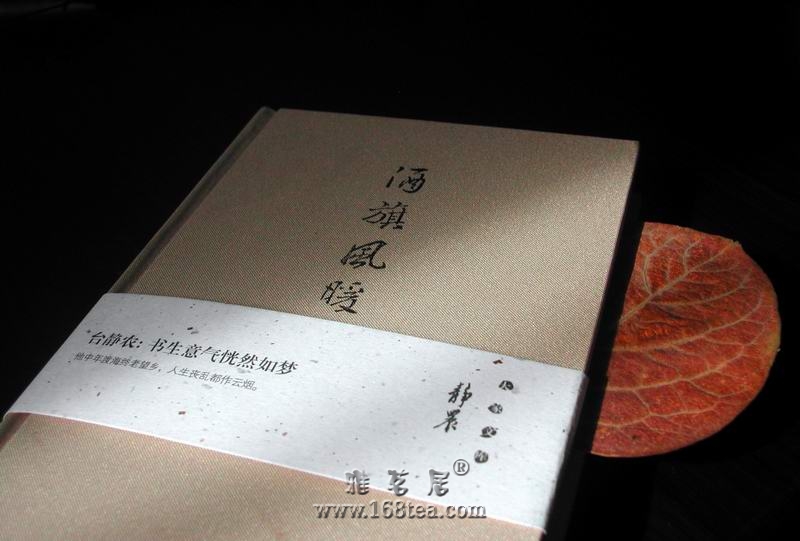 酒旗風暖
台静农: 书生意气恍然如梦
他中年渡海终老望乡，人生丧乱都作云烟。
静农
雅茗居®
www.168tea.com